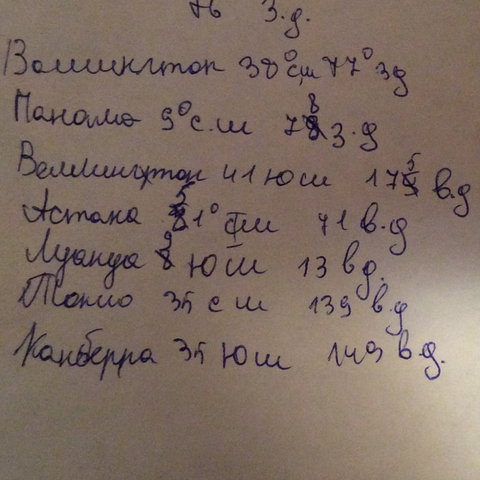 76 з.д.
Вашингтон 38° сш 77° зд
Панама 9° с.ш 78 з.д
Веллингтон 41 юш 175 в.д
Астана 51° сш 71 в.д
Луанда 9 юш 13 в д.
Токио 35 с ш 139 в.д
Канберра 35 юш 149 в.д.